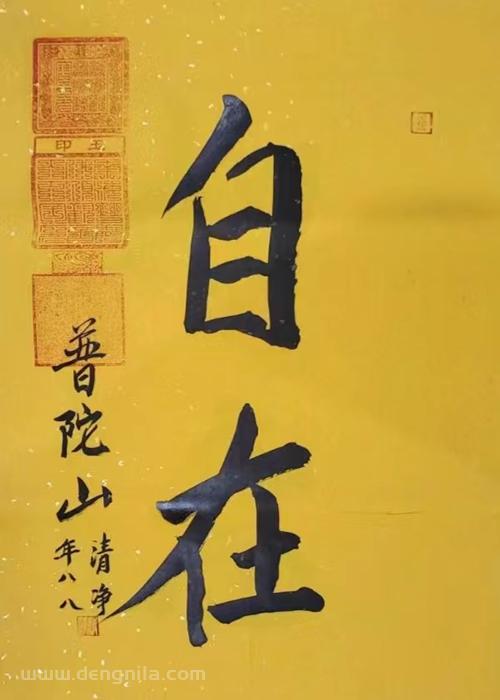 自在
普陀山
清净
年八八
玉印
www.dengnila.com